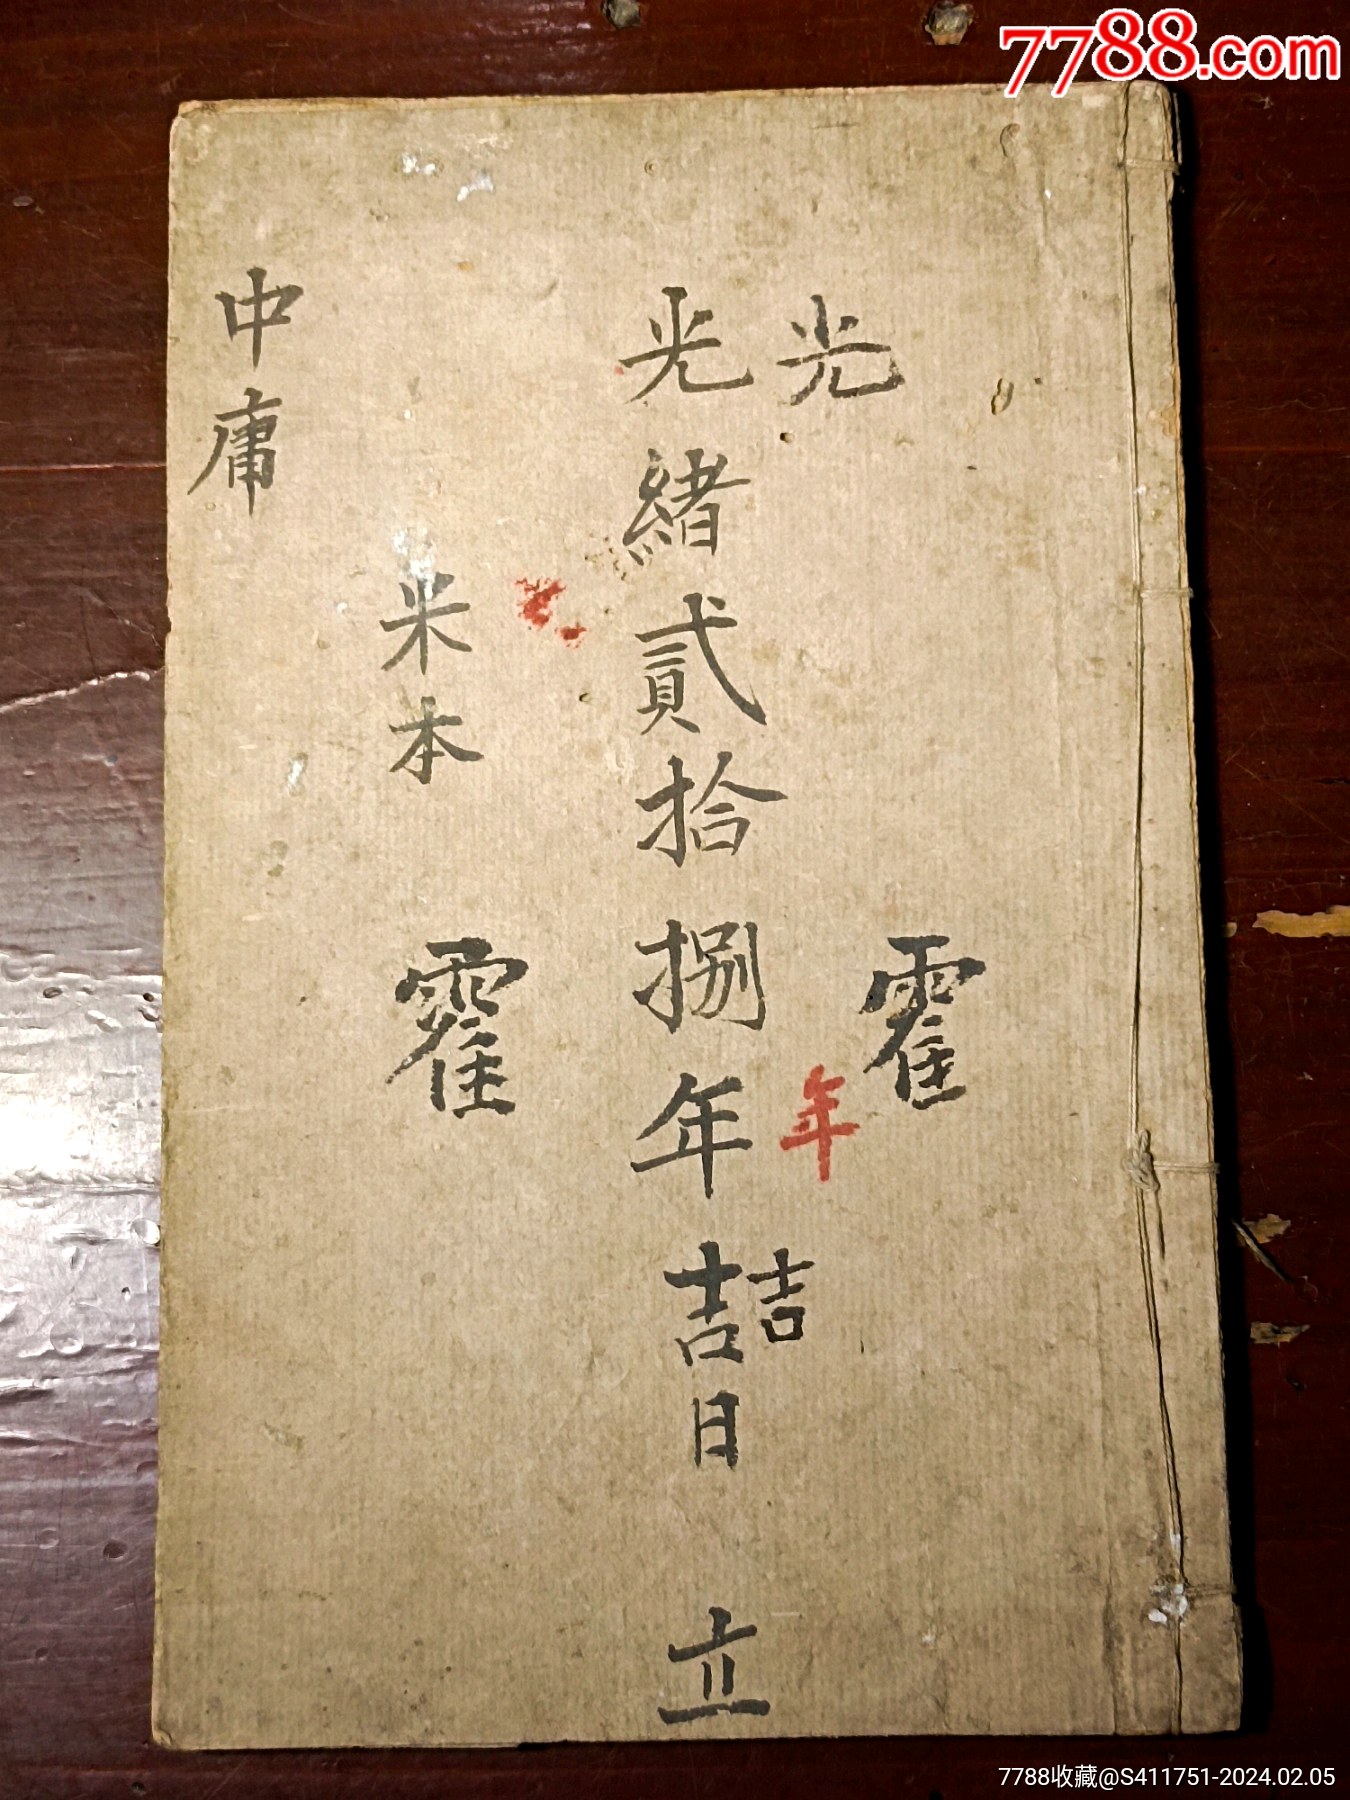 7788.com
光
霍
年
吉
光緒貳拾捌年吉日 立
米本
霍
中庸
7788收藏@S411751-2024.02.05